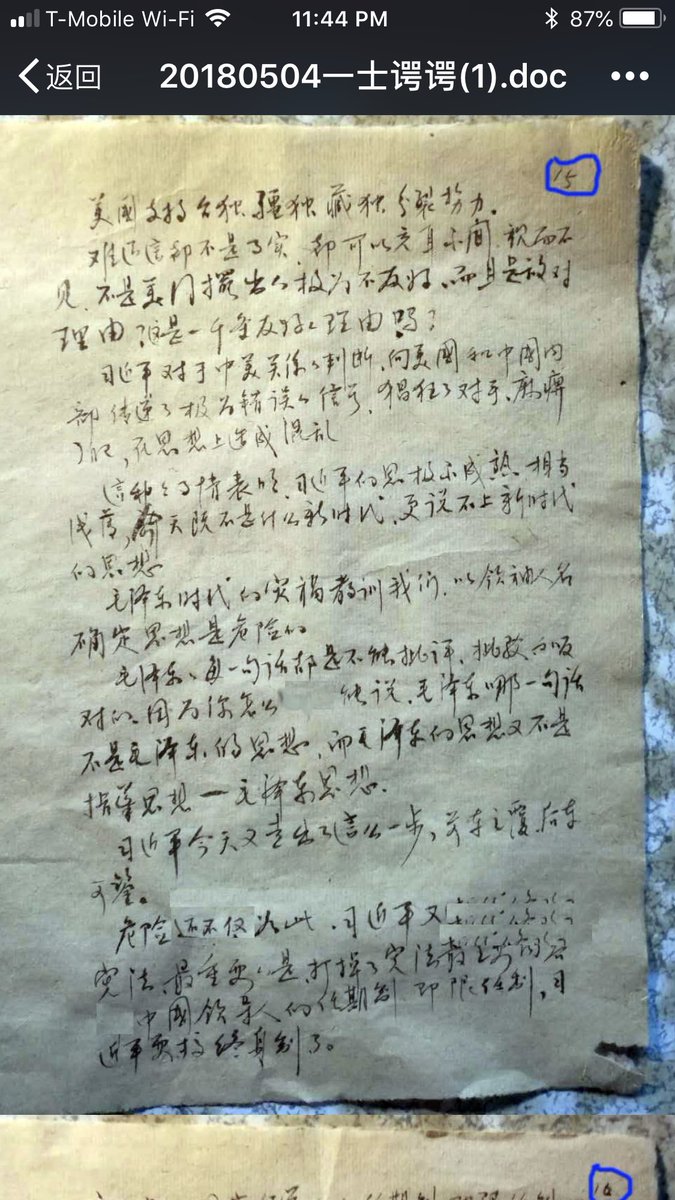 T-Mobile Wi-Fi 11:44 PM 87%
返回 20180504一士谔谔(1).doc
15
美國支持台独、疆独、藏独分裂势力。
难道這都不是事实，都可以充耳不闻，视而不
见，不是我们摆出一极为不友好，而且是敌对
理由？這是一千条友好的理由吗？
习近平对于中美关系的判断，向美國和中國内
部传递了极为错误的信号，猖狂了对手，麻痹
了自己，在思想上造成混乱
這种种事情表明，习近平的思想不成熟，相当
浅薄，今天既不是什么新时代，更说不上新时代
的思想
毛泽东时代的实祸教训我们，以领袖人名
确定思想是危险的
毛泽东的每一句话都是不能批评，批驳和反
对的。因为你怎么 能说，毛泽东哪一句话
不是毛泽东的思想，而毛泽东的思想又不是
指導思想一毛泽东思想。
习近平今天又走出了這么一步，前车之覆，后车
可鉴。
危险还不仅如此，习近平又
宪法，最重要的是，打掉了宪法
中國领导人的任期制，即限任制，习
近平要搞终身制了。